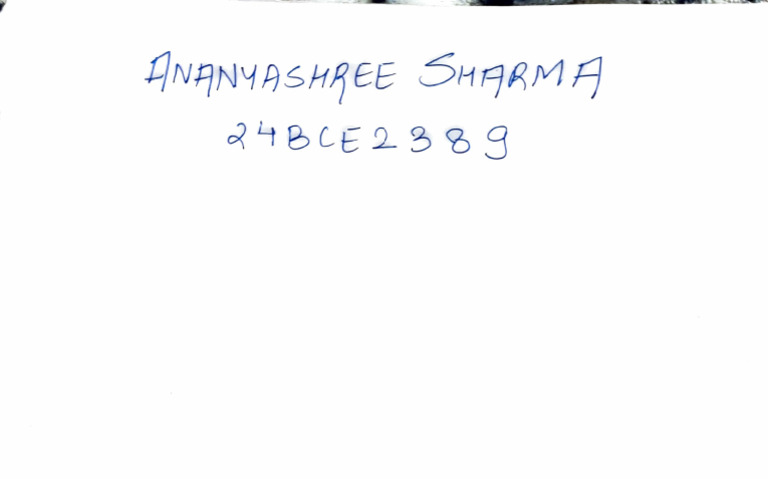 ANANYASHREE SHARMA
24BCE2389